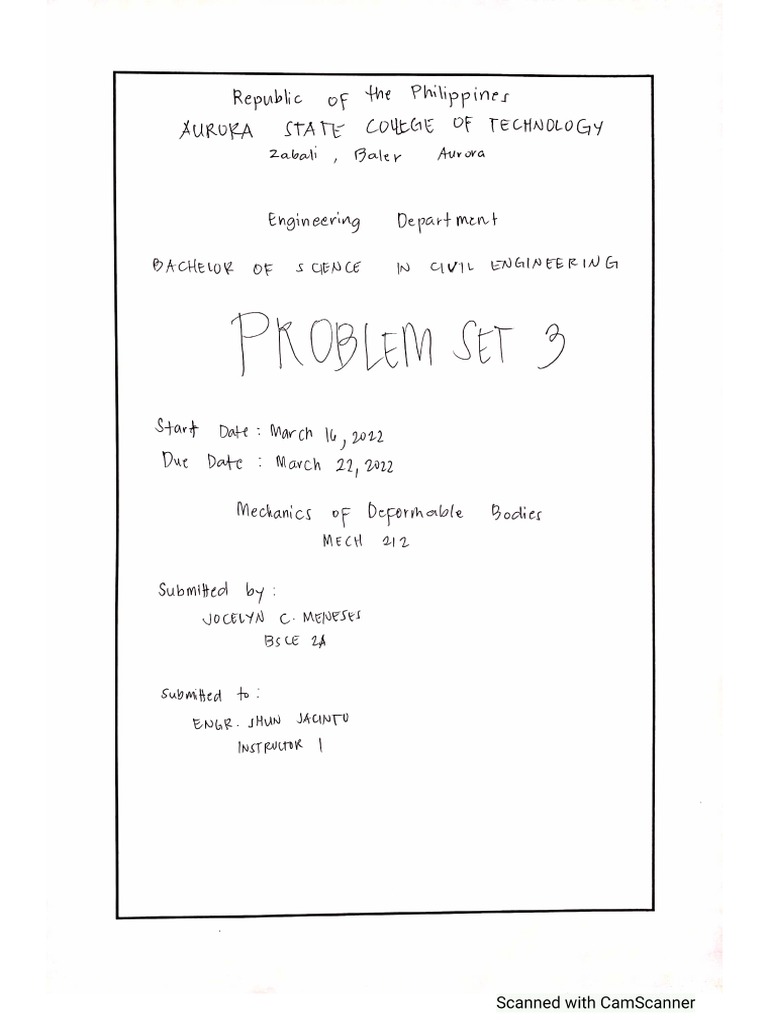 Republic of the Philippines
AURORA STATE COLLEGE OF TECHNOLOGY
Zabali, Baler Aurora
Engineering Department
BACHELOR OF SCIENCE IN CIVIL ENGINEERING
PROBLEM SET 3
Start Date : March 16, 2022
Due Date : March 22, 2022
Mechanics of Deformable Bodies
MECH 212
Submitted by :
JOCELYN C. MENESES
BSCE 2A
Submitted to :
ENGR. JHUN JACINTO
INSTRUCTOR I
Scanned with CamScanner